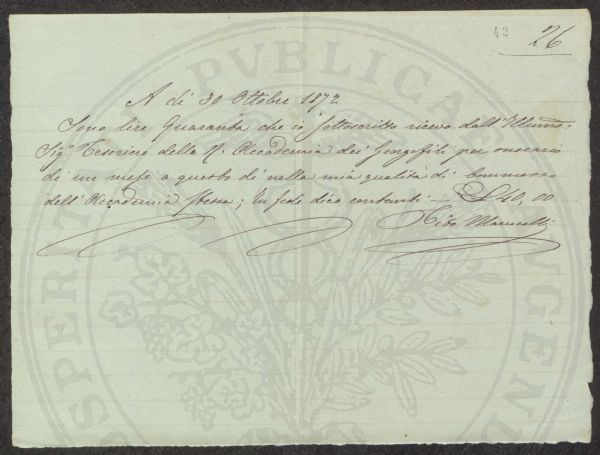 42
26
A dì 30 Ottobre 1872
Sono lire Quaranta che io sottoscritto ricevo dall'Illumo.
Sigr Tesoriere della R. Accademia dei Georgofili per onorario
di un mese a questo dì nella mia qualità di Commesso
dell'Accademia stessa; In fede dico contanti — £ 40,00
PUBLICA
PROSPERITATI
AUGENDAE